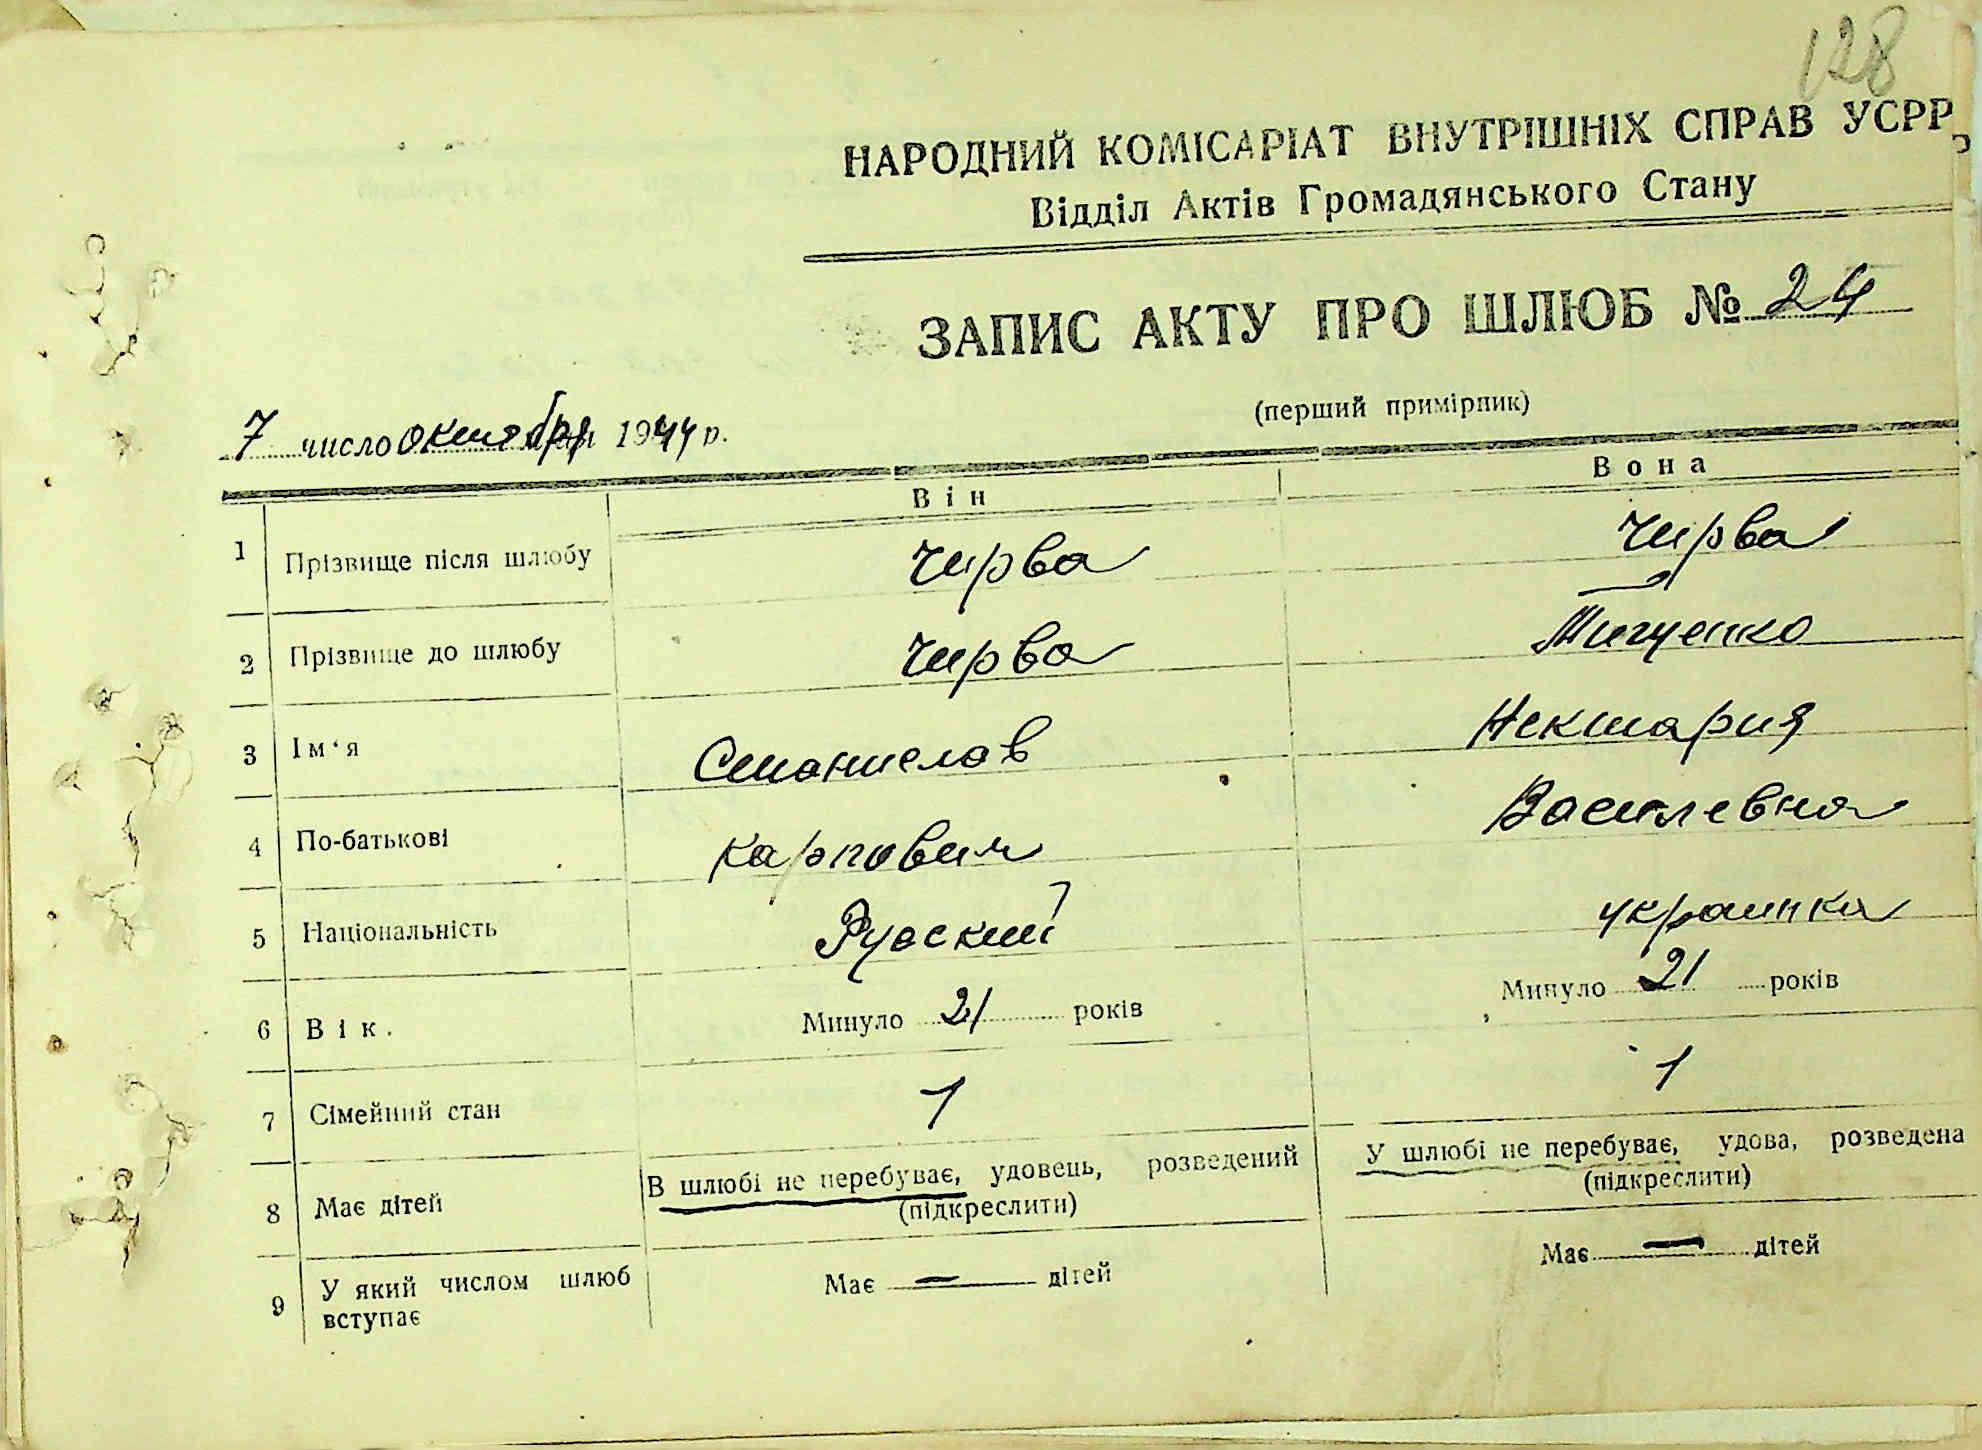 128
НАРОДНИЙ КОМІСАРІАТ ВНУТРІШНІХ СПРАВ УСРР
Відділ Актів Громадянського Стану
ЗАПИС АКТУ ПРО ШЛЮБ № 24
(перший примірник)
7 число октября 1944 р.
Він Вона
1 Прізвище після шлюбу Чирва Чирва
2 Прізвище до шлюбу Чирва
3 Ім‘я Станислав Нектария
4 По-батькові Карпович Василевна
5 Національність Руский украинка
6 Вік. Минуло 21 років Минуло 21 років
7 Сімейний стан 1 1
8 Має дітей В шлюбі не перебуває, удовець, розведений У шлюбі не перебуває, удова, розведена
(підкреслити) (підкреслити)
9 У який числом шлюб Має — дітей Має — дітей
вступає